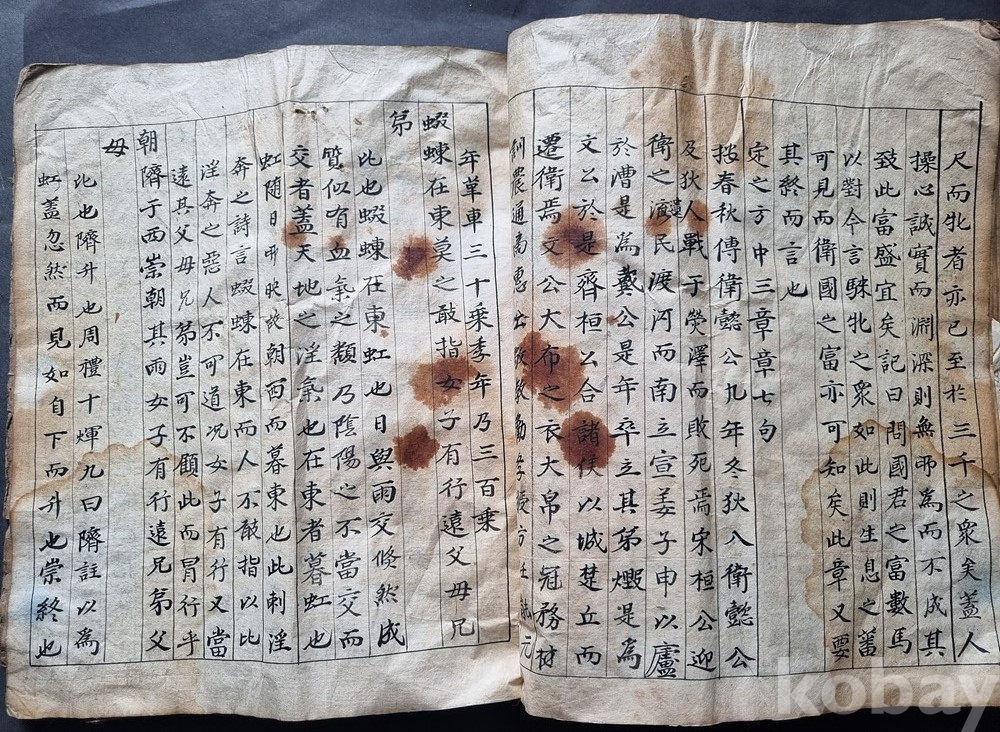 尺而牝者亦已至於三千之衆矣蓋人
操心誠實而淵深則無所為而不成其
致此富盛宜矣記曰問國君之富數馬
以對今言騋牝之衆如此則生息之蕃
可見而衛國之富亦可知矣此章又要
其終而言也
定之方中三章章七句
按春秋傳衛懿公九年冬狄入衛懿公
及狄人戰于熒澤而敗死焉宋桓公迎
衛之遺民渡河而南立宣姜子申以廬
於漕是為戴公是年卒立其苐燬是為
文公於是齊桓公合諸侯以城楚丘而
遷衛焉文公大布之衣大帛之冠務材
訓農通商惠工敬教勸學授方任能元
年革車三十乗季年乃三百乗
蝃蝀在東莫之敢指女子有行遠父母兄
苐
比也蝃蝀在東虹也日與雨交倐然成
質似有血氣之類乃陰陽之不當交而
交者蓋天地之淫氣也在東者暮虹也
虹随日所映故朝西而暮東也此刺淫
奔之詩言蝃蝀在東而人不敢指以比
淫奔之惡人不可道况女子有行又當
遠其父母兄苐豈可不顧此而冒行乎
朝隮于西崇朝其雨女子有行遠兄苐父
母
比也隮升也周禮十煇九曰隮註以為
虹蓋忽然而見如自下而升也崇終也
kobay